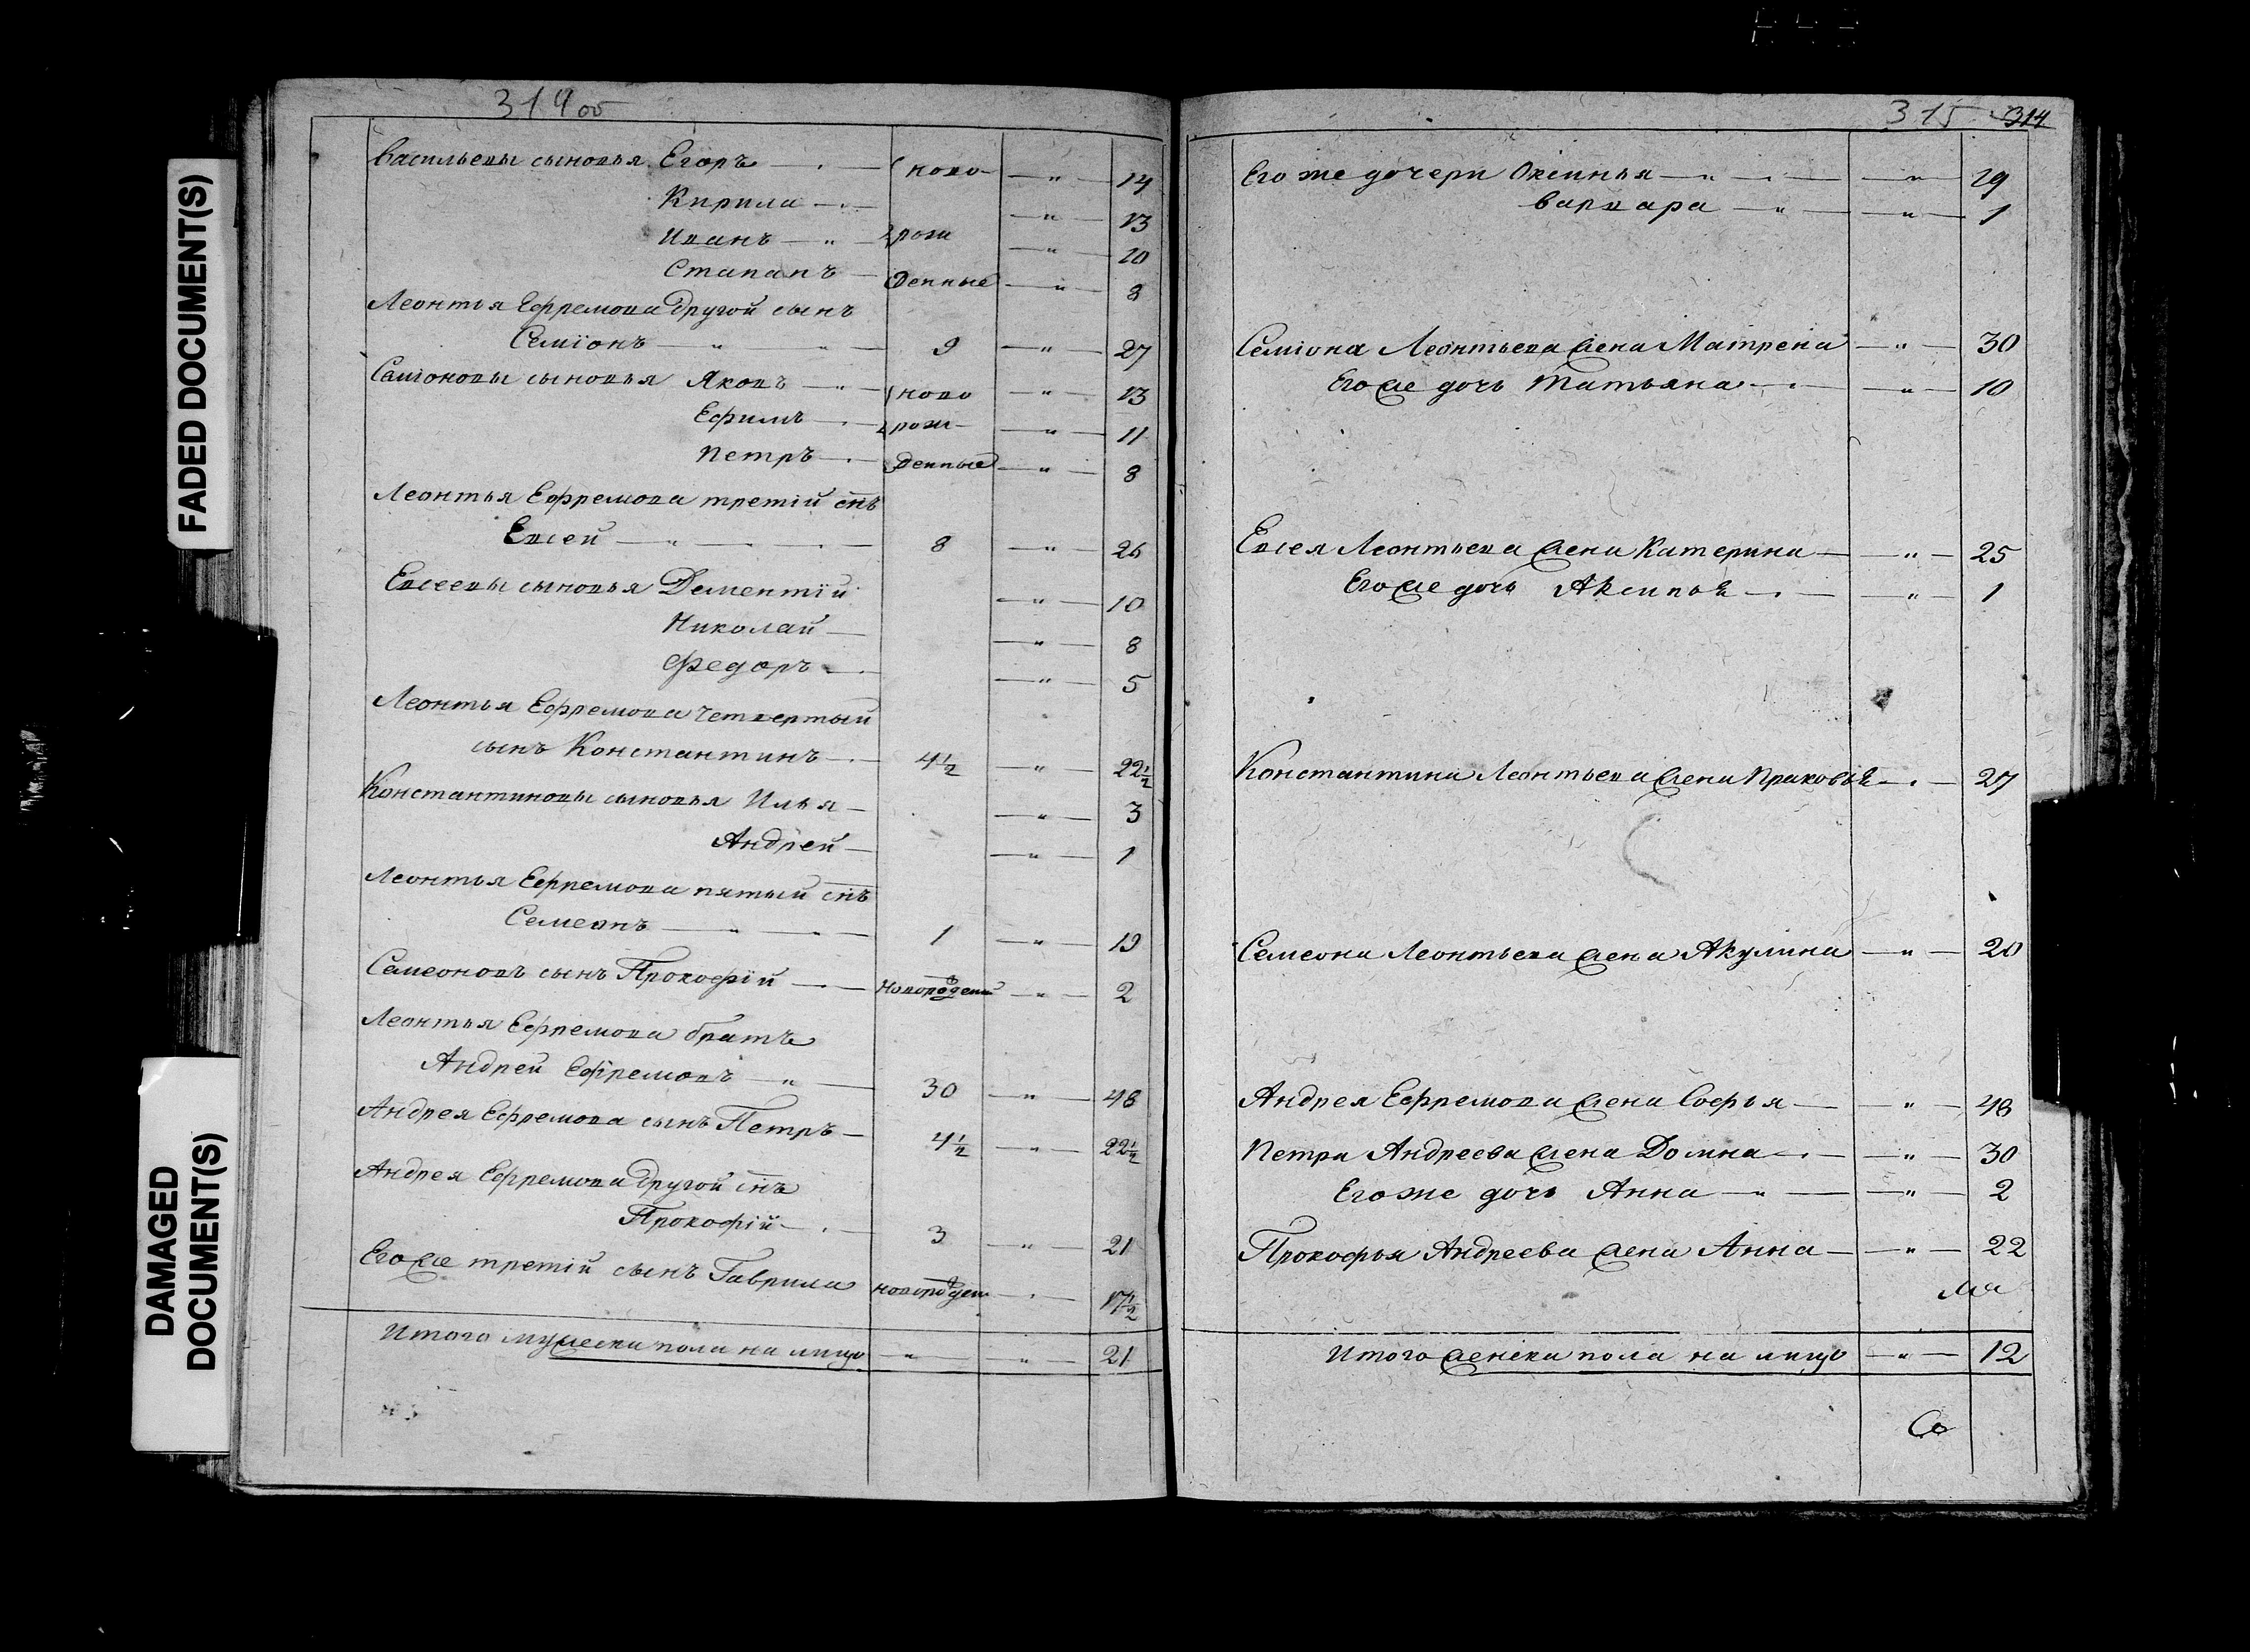 FADED DOCUMENT(S)
DAMAGED
DOCUMENT(S)
314 об
Васильевы сыновья Егоръ — ново- — " — 14
Кирила — — " — 13
Иванъ — " — рож — " — 10
Степанъ — денные — " — 8
Леонтья Ефремова другой сынъ
Семіонъ — " — 9 — " — 27
Семіоновы сыновья Яковъ — " — ново — " — 13
Ефимъ — рож- — " — 11
Петръ — денные — " — 8
Леонтья Ефремова третій снъ
Евсей — " — 8 — " — 26
Евсеевы сыновья Дементій — " — 10
Николай — — " — 8
Федоръ — — " — 5
Леонтья Ефремова четвертый
сынъ Константинъ — 4½ — " — 22½
Константиновы сыновья Илья — — " — 3
Андрей — — " — 1
Леонтья Ефремова пятый снъ
Семеонъ — " — 1 — " — 19
Семеоновъ сынъ Прокофій — новорожден — " — 2
Леонтья Ефремова братъ
Андрей Ефремовъ — " — 30 — " — 48
Андрея Ефремова сынъ Петръ — 4½ — " — 22½
Андрея Ефремова другой снъ
Прокофій — 3 — " — 21
Его же третій сынъ Гаврила новорожден — 17½
Итого мужеска пола на лицо — " — " — 21
315 314
Его же дочери Оксинья — " — " — 19
Варвара — " — " — 1
Семіона Леонтьева жена Матрена — " — 30
Его же дочь Татьяна — " — 10
Евсея Леонтьева жена Катерина — " — 25
Его же дочь Аксинья — " — 1
Константина Леонтьева жена Прасковья — 27
Семеона Леонтьева жена Акулина — " — 20
Андрея Ефремова жена Софья — " — 48
Петра Андреева жена Домна — " — 30
Его же дочь Анна — " — " — 2
Прокофья Андреева жена Анна — " — 22
Итого женска пола на лицо — " — 12
Со